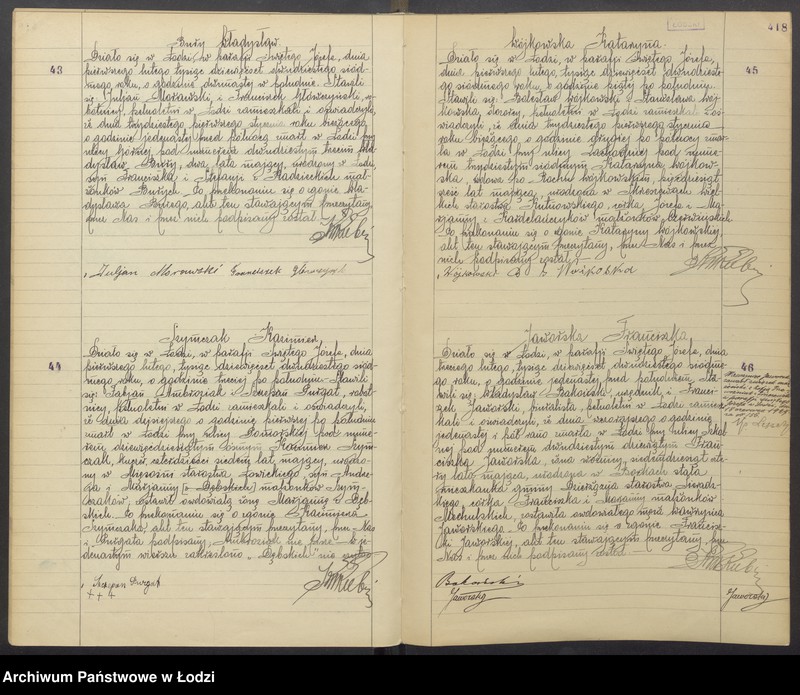 418
Bury Władysław.
43
Działo się w Łodzi, w parafji Świętego Józefa, dnia
pierwszego lutego, tysiąc dziewięćset dwudziestego siód-
mego roku, o godzinie dwunastej w południe. Stawili
się: Juljan Morawski, i Franciszek Główczyński, ro-
botnicy, pełnoletni w Łodzi zamieszkali i oświadczyli,
iż dnia trzydziestego pierwszego stycznia roku bieżącego,
o godzinie jedenastej przed północą umarł w Łodzi przy
ulicy Górnej pod numerem dwudziestym trzecim Wła-
dysław Bury, dwa lata mający, urodzony w Łodzi,
syn Franciszka i Stefanji z Kładzieckich mał-
żonków Burych. Po przekonaniu się o zgonie Wła-
dysława Burego, akt ten stawającym przeczytany,
przez Nas i przez nich podpisany został.
Juljan Morawski Franciszek
44
Szymczak Kazimierz.
Działo się w Łodzi, w parafji Świętego Józefa, dnia
pierwszego lutego, tysiąc dziewięćset dwudziestego siód-
mego roku, o godzinie trzeciej po południu. Stawili
się: Fabjan Ambroziak i Szczepan Durgat, robot-
nicy, pełnoletni w Łodzi zamieszkali i oświadczyli,
iż dnia dzisiejszego o godzinie pierwszej po południu
umarł w Łodzi przy ulicy pod nume-
rem dziewięćdziesiątym ósmym Kazimierz Szym-
czak, kupiec, czterdzieści siedem lat mający, urodzo-
ny w starostwa Łowickiego, syn Andrze-
ja i Marjanny z Dębskich małżonków Szym-
czaków, zostawił owdowiałą żonę Marjannę z Dęb-
skich. Po przekonaniu się o zgonie Kazimierza
Szymczaka, akt ten stawającym przeczytany, przez Nas
i Durgata podpisany; Ambroziak nie pisze. W je-
denastym wierszu zakreślono "Dębskich" nie czytać
Szczepan Durgat
+++
Wójkowska Katarzyna.
45
Działo się w Łodzi, w parafji Świętego Józefa,
dnia pierwszego lutego, tysiąc dziewięćset dwudzieste-
go siódmego roku, o godzinie piątej po południu.
Stawili się: Bolesław Wójkowski i Stanisława Wój-
kowska, dozorcy, pełnoletni w Łodzi zamieszkali i oś-
wiadczyli, iż dnia trzydziestego pierwszego stycznia
roku bieżącego, o godzinie drugiej po północy umar-
ła w Łodzi przy ulicy pod nume-
rem trzydziestym siódmym Katarzyna Wójkow-
ska, wdowa po Rochu Wójkowskim, pięćdziesiąt
sześć lat mająca, urodzona w Wiel-
kich starostwa Kutnowskiego, córka Józefa i Ma-
rjanny z małżonków Czerwińskich.
Po przekonaniu się o zgonie Katarzyny Wójkowskiej,
akt ten stawającym przeczytany, przez Nas i przez
nich podpisany został.
Wójkowski B S Wójkoska
46
Jaworska Franciszka
Działo się w Łodzi, w parafji Świętego Józefa, dnia
trzeciego lutego, tysiąc dziewięćset dwudziestego siódme-
go roku, o godzinie jedenastej przed południem. Sta-
wili się: Władysław Bąkowski, urzędnik, i Francisz-
szek Jaworski, piwialista, pełnoletni w Łodzi zamiesz-
kali i oświadczyli, iż dnia wczorajszego o godzinie
jedenastej i pół rano umarła w Łodzi przy ulicy
pod numerem dwudziestym dziewiątym Fran-
ciszka Jaworska, siedmdziesiąt czte-
ry lata mająca, urodzona w stała
mieszkanka gminy starostwa Sieradz-
kiego, córka Franciszka i małżonków
zostawiła owdowiałego męża Wawrzyńca
Jaworskiego. Po przekonaniu się o zgonie Francisz-
ki Jaworskiej, akt ten stawającym przeczytany, przez
Nas i przez nich podpisany został.
Bąkowski
Jaworski
Jaworski
Archiwum Państwowe w Łodzi